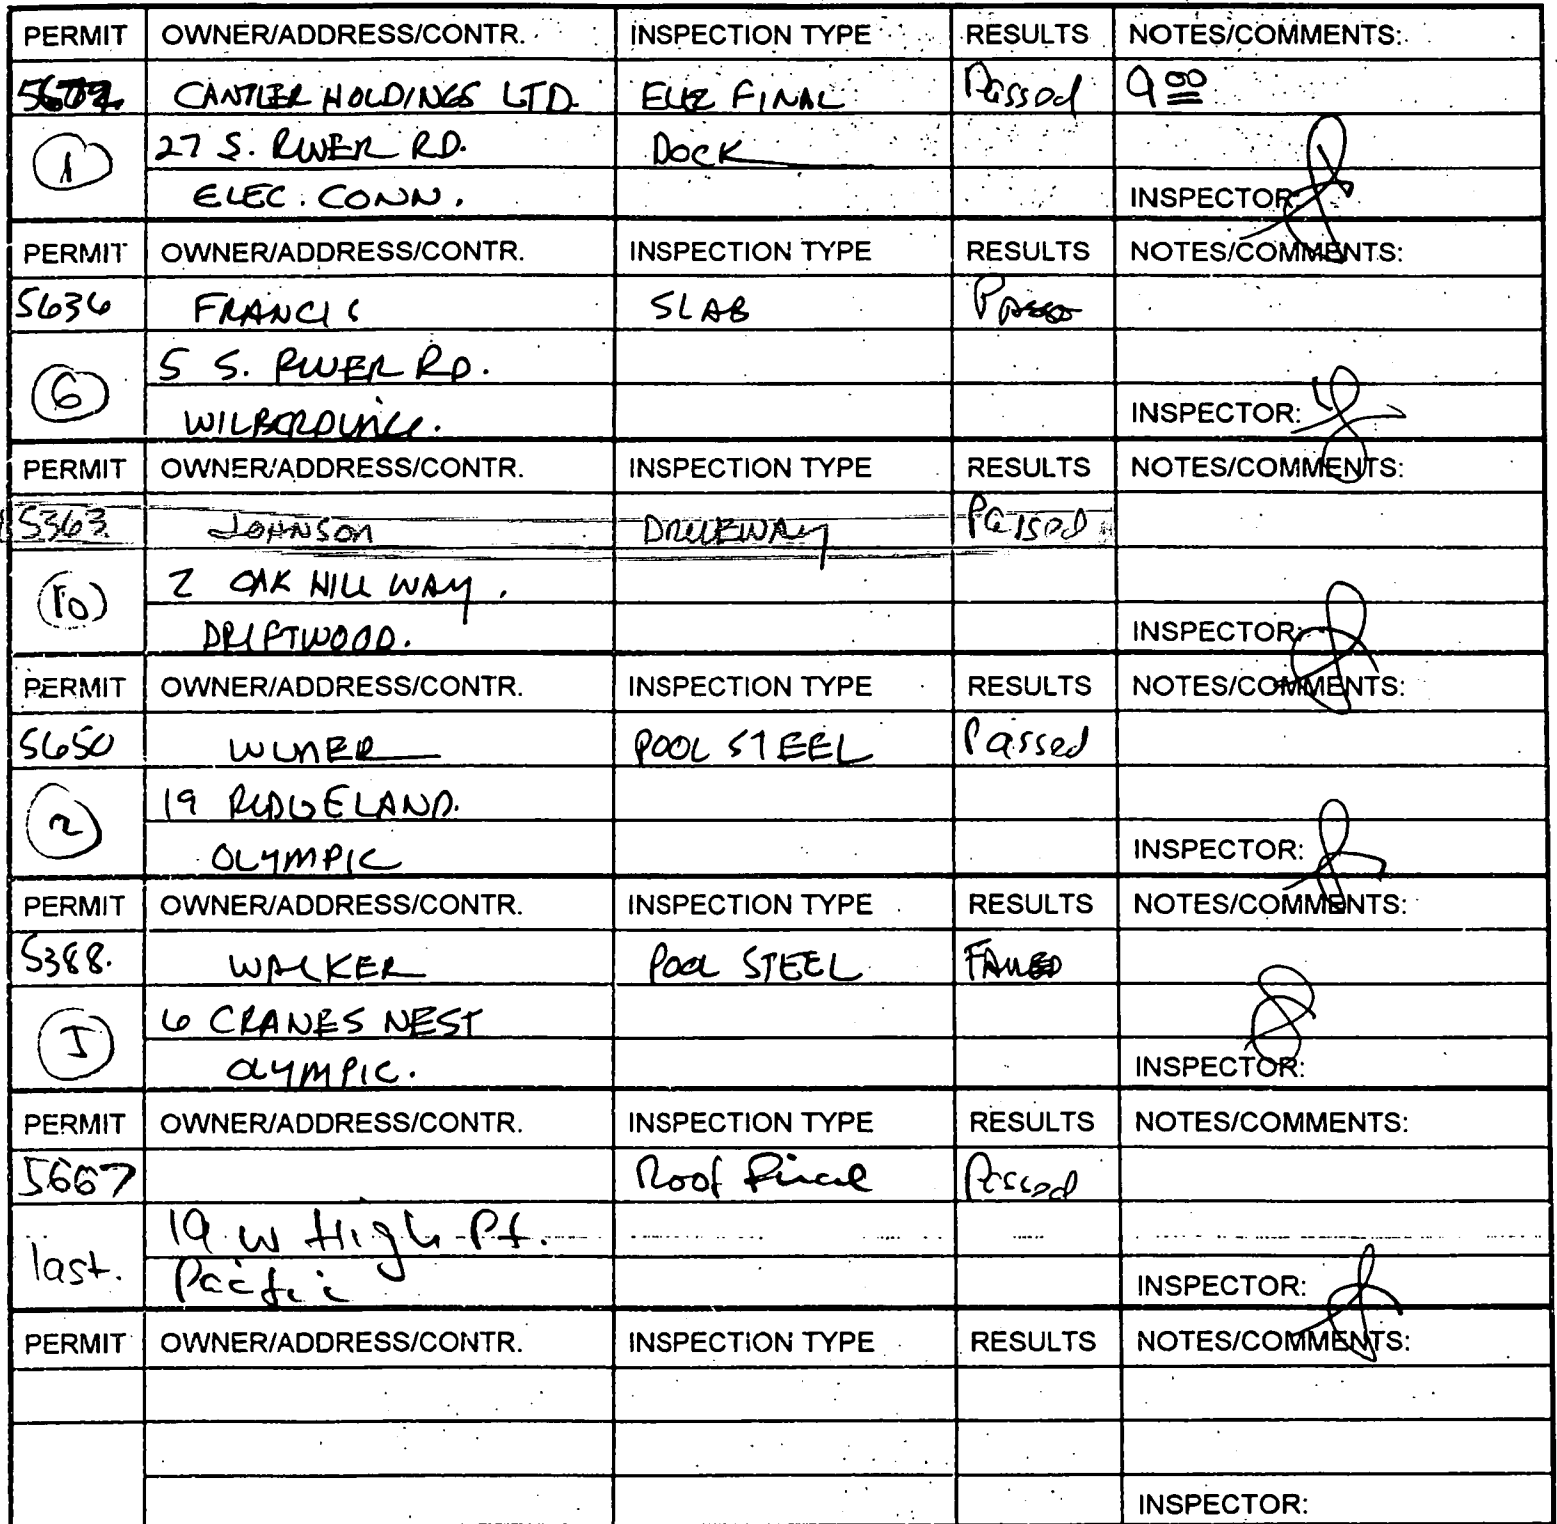 PERMIT OWNER/ADDRESS/CONTR. INSPECTION TYPE RESULTS NOTES/COMMENTS:
CANTLER HOLDINGS LTD. ELEC FINAL Passed 9 00
1 27 S. RIVER RD. DOCK
ELEC. CONN. INSPECTOR:
PERMIT OWNER/ADDRESS/CONTR. INSPECTION TYPE RESULTS NOTES/COMMENTS:
5636 FRANCIS SLAB
6 5 S. RIVER RD.
INSPECTOR:
PERMIT OWNER/ADDRESS/CONTR. INSPECTION TYPE RESULTS NOTES/COMMENTS:
5363 JOHNSON DRIVEWAY Passed
10 2 OAK HILL WAY.
DRIFTWOOD. INSPECTOR:
PERMIT OWNER/ADDRESS/CONTR. INSPECTION TYPE RESULTS NOTES/COMMENTS:
5650 POOL STEEL Passed
2 19 RIDGELAND.
OLYMPIC INSPECTOR:
PERMIT OWNER/ADDRESS/CONTR. INSPECTION TYPE RESULTS NOTES/COMMENTS:
5388. WALKER POOL STEEL FAILED
6 CRANES NEST
OLYMPIC. INSPECTOR:
PERMIT OWNER/ADDRESS/CONTR. INSPECTION TYPE RESULTS NOTES/COMMENTS:
5667 Roof Final Passed
last. 19 W High Pt.
Pacific INSPECTOR:
PERMIT OWNER/ADDRESS/CONTR. INSPECTION TYPE RESULTS NOTES/COMMENTS:
INSPECTOR: